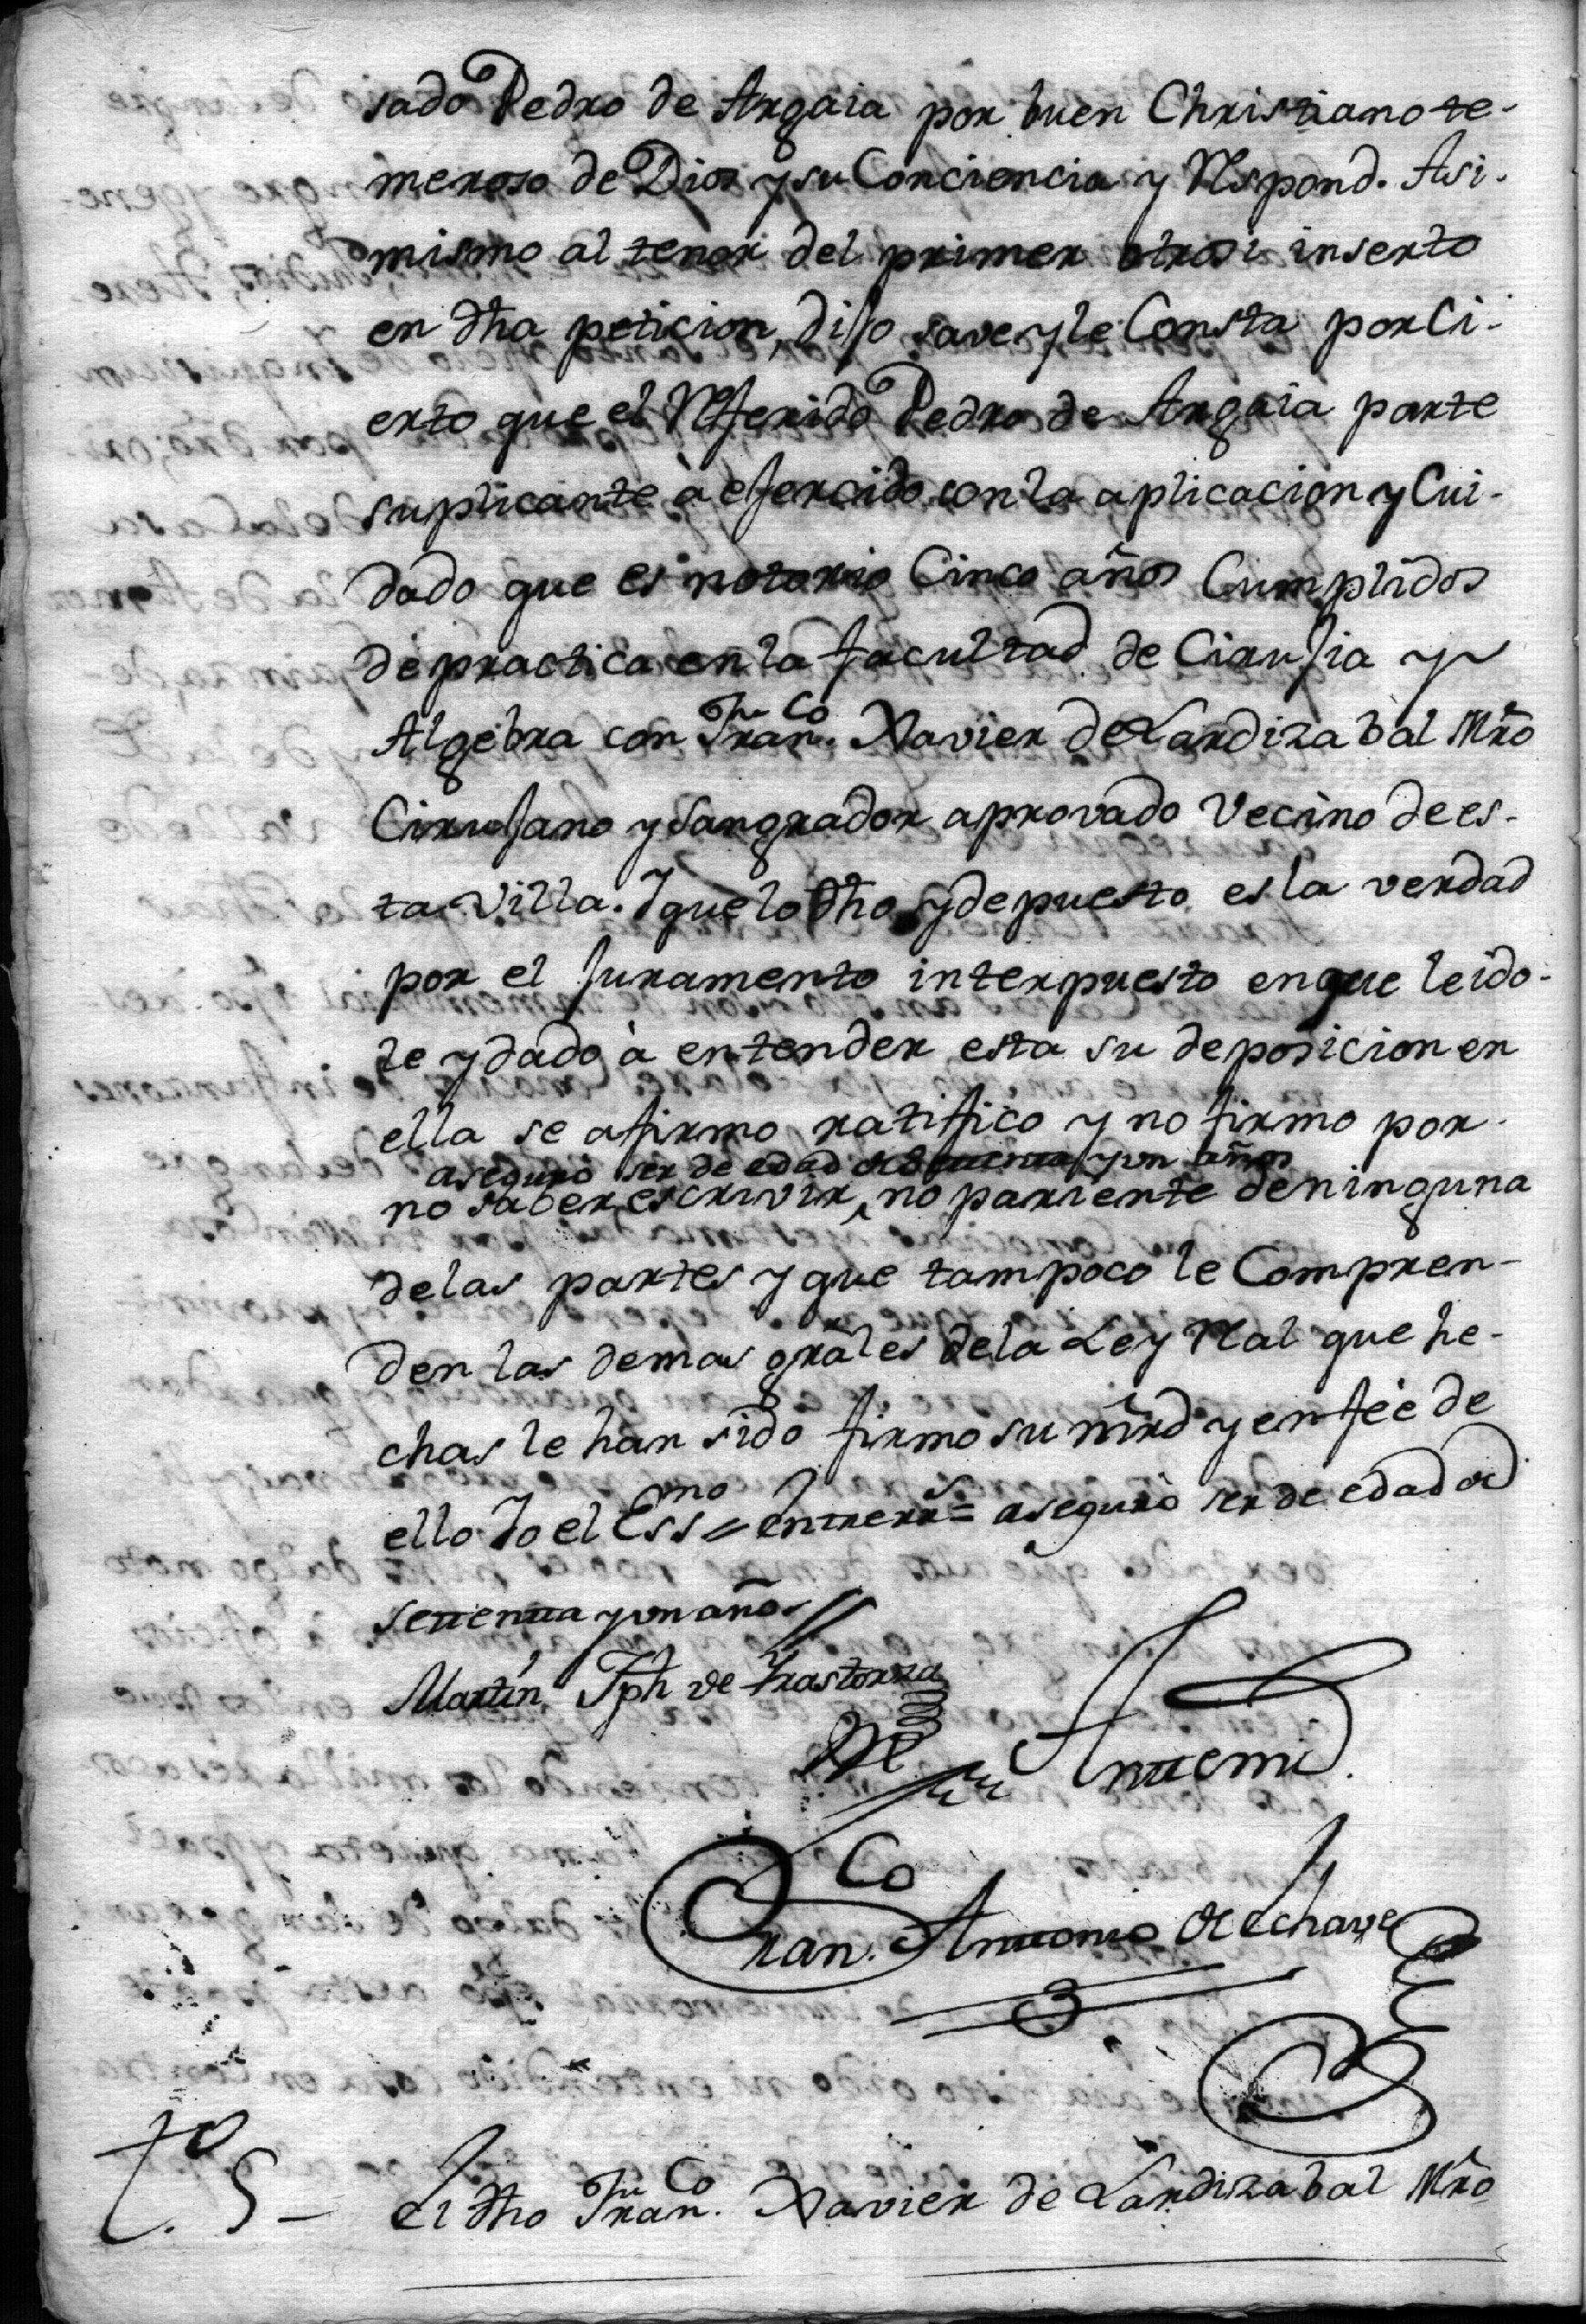 sado Pedro de Argaia por buen Christiano te-
meroso de Dios y su Conciencia y Respond. Asi-
mismo al tenor del primer otrosi inserto
en dha peticion, dijo save y le Consta por Ci-
erto que el Referido Pedro de Argaia parte
suplicante à ejercido con la aplicacion y Cui-
dado que es notorio Cinco años Cumplidos
de practica en la facultad de Cirujia y
Algebra con Fran.co Xavier de Lardizabal Mro
Cirujano y Sangrador aprovado Vecino de es-
ta Villa. Y que lo dho y depuesto es la verdad
por el Juramento interpuesto en que leido-
le y dado à entender esta su deposicion en
ella se afirmo ratifico y no firmo por
aseguró ser de edad de settenta y un años
no saber escrivir, no pariente de ninguna
de las partes y que tampoco le Compren-
den las demas grâles de la Ley Real que he-
chas le han sido firmo su mrd y en feé de
ello Yo el Essno = entrerrs = aseguró ser de edad de
settenta y un años //
Martin Jph de Yrastorza
Antte mi
Fran.co Anttonio de Echave
t.o 5 - El dho Fran.co Xavier de Lardizabal Mro